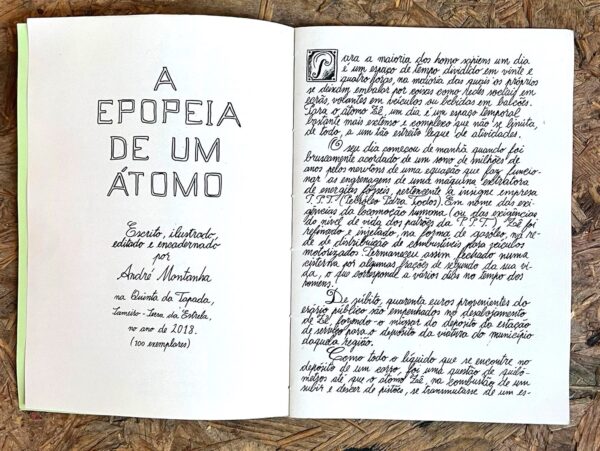 A
EPOPEIA
DE UM
ÁTOMO
Escrito, ilustrado,
editado e encadernado
por
André Montanha
na Quinta da Tapada,
Lameiro - Serra da Estrela,
no ano de 2018.
(100 exemplares)
Para a maioria dos homo sapiens um dia
é um espaço de tempo dividido em vinte e
quatro horas, na maioria das quais os próprios
se deixam embalar por coisas como redes sociais em
ecrãs, volantes em veículos ou bebidas em balcões.
Para o átomo Zé, um dia é um espaço temporal
bastante mais extenso e complexo que não se limita,
de todo, a um tão estreito leque de atividades.
O seu dia começou de manhã quando foi
bruscamente acordado de um sono de milhões de
anos pelos newtons de uma equação que faz funcio-
nar as engrenagens de uma máquina extratora
de energias fósseis, pertencente à insigne empresa
T.P.T. (Petróleo Para Todos). Em nome das exi-
gências da locomoção humana (ou das exigências
do nível de vida dos patrões da T.P.T.) Zé foi
refinado e injetado, na forma de gasóleo, na re-
de de distribuição de combustíveis para veículos
motorizados. Permaneceu assim fechado numa
cisterna por algumas frações de segundo da sua vi-
da, o que corresponde a vários dias no tempo dos
homens.
De súbito, quarenta euros provenientes do
erário público são empenhados no desalojamento
de Zé, fazendo-o migrar do depósito da estação
de serviço para o depósito da viatura do município
daquela região.
Como todo o líquido que se encontre no
depósito de um carro, foi uma questão de quiló-
metros até que o átomo Zé, na combustão de um
subir e descer de pistões, se transmutasse de um es-